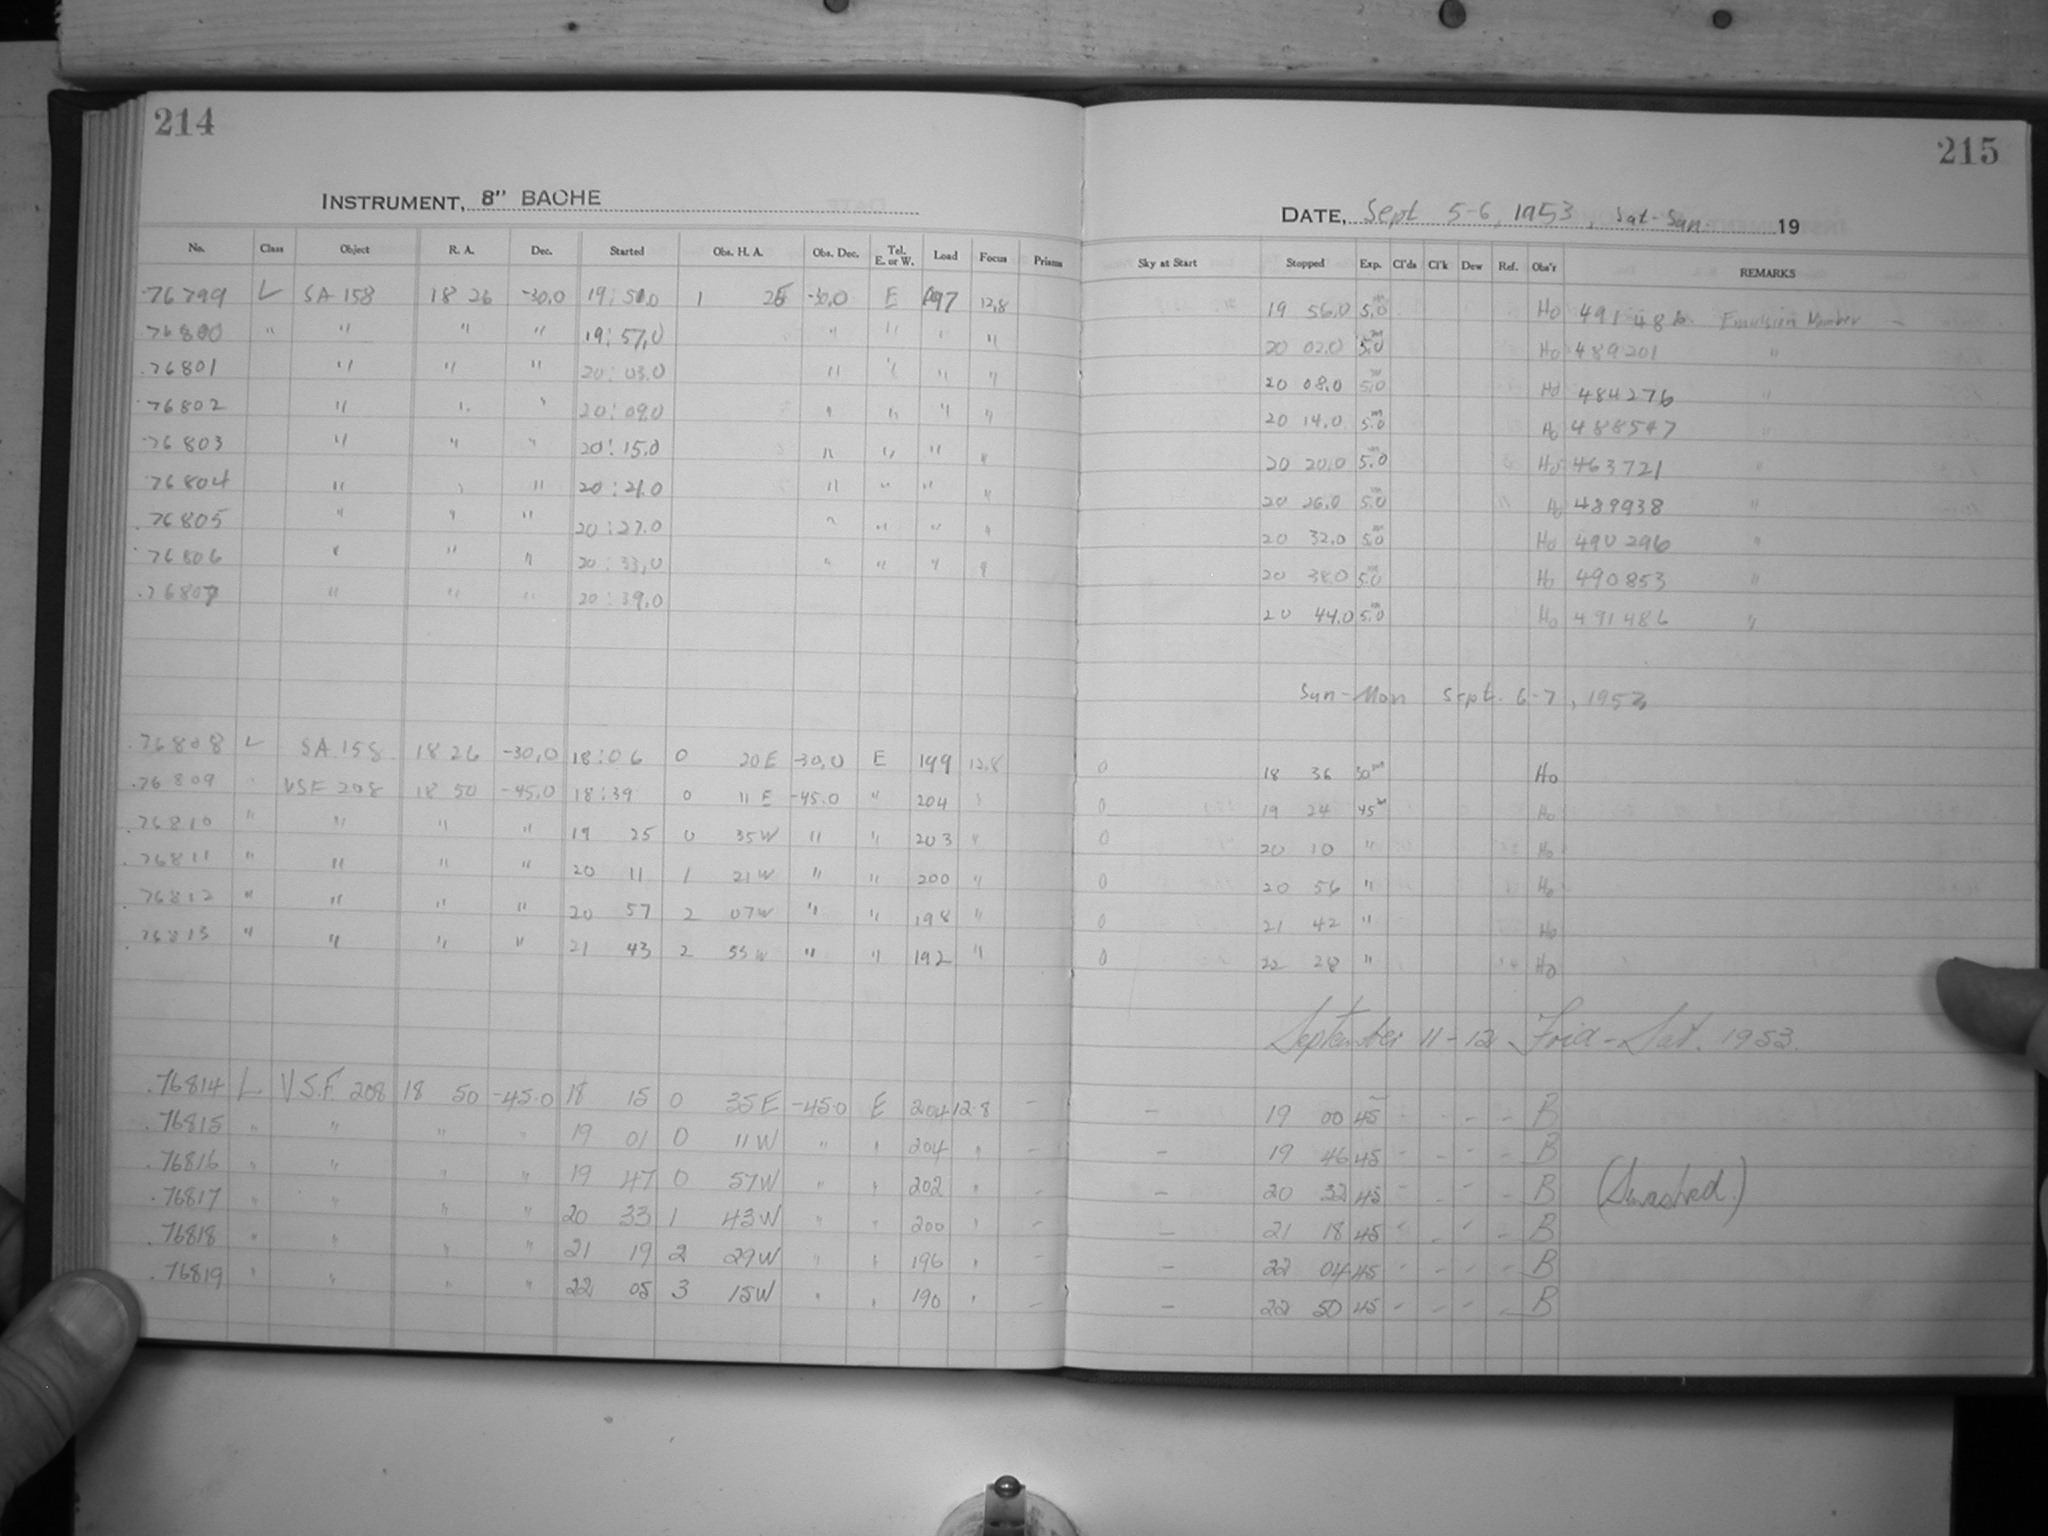 214
INSTRUMENT, 8" BACHE
No. Class Object R. A. Dec. Started Obs. H. A. Obs. Dec. Tel. E. or W. Load Focus Prisms
76799 L SA 158 18 26 -30.0 19:51.0 1 25 -30.0 E 197 12.8
76800 " " " " 19:57.0 " " " "
76801 " " " 20:03.0 " " " "
76802 " " " 20:09.0 " " " "
76803 " " " 20:15.0 " " " "
76804 " " " 20:21.0 " " " "
76805 " " " 20:27.0 " " " "
76806 " " " 20:33.0 " " " "
76807 " " " 20:39.0
76808 L SA 158 18 26 -30.0 18:06 0 20 E -30.0 E 199 12.8
76809 " VSF 208 18 50 -45.0 18:39 0 11 E -45.0 " 204 "
76810 " " " " 19 25 0 35 W " " 203 "
76811 " " " " 20 11 1 21 W " " 200 "
76812 " " " " 20 57 2 07 W " " 198 "
76813 " " " " 21 43 2 53 W " " 192 "
76814 L V.S.F. 208 18 50 -45.0 18 15 0 35 E -45.0 E 204 12.8 -
76815 " " " " 19 01 0 11 W " " 204 " -
76816 " " " " 19 47 0 57 W " " 202 " -
76817 " " " " 20 33 1 43 W " " 200 " -
76818 " " " " 21 19 2 29 W " " 196 " -
76819 " " " " 22 05 3 15 W " " 190 " -
215
DATE, Sept 5-6, 1953, Sat-Sun. 19
Sky at Start Stopped Exp. Cl'ds Cl'k Dew Ref. Obs'r REMARKS
19 56.0 5.0m Ho 491486 Emulsion Number
20 02.0 5.0m Ho 489201 "
20 08.0 5.0m Ho 484276 "
20 14.0 5.0m Ho 488547 "
20 20.0 5.0m Ho 463721 "
20 26.0 5.0m Ho 489938 "
20 32.0 5.0m Ho 490296 "
20 38.0 5.0m Ho 490853 "
20 44.0 5.0m Ho 491486 "
Sun-Mon Sept. 6-7, 1953
0 18 36 30m Ho
0 19 24 45m Ho
0 20 10 " Ho
0 20 56 " Ho
0 21 42 " Ho
0 22 28 " Ho
September 11-12 Frid-Sat. 1953.
- 19 00 45 - - - - B
- 19 46 45 - - - - B
- 20 32 45 - - - - B
- 21 18 45 - - - - B
- 22 04 45 - - - - B
- 22 50 45 - - - - B